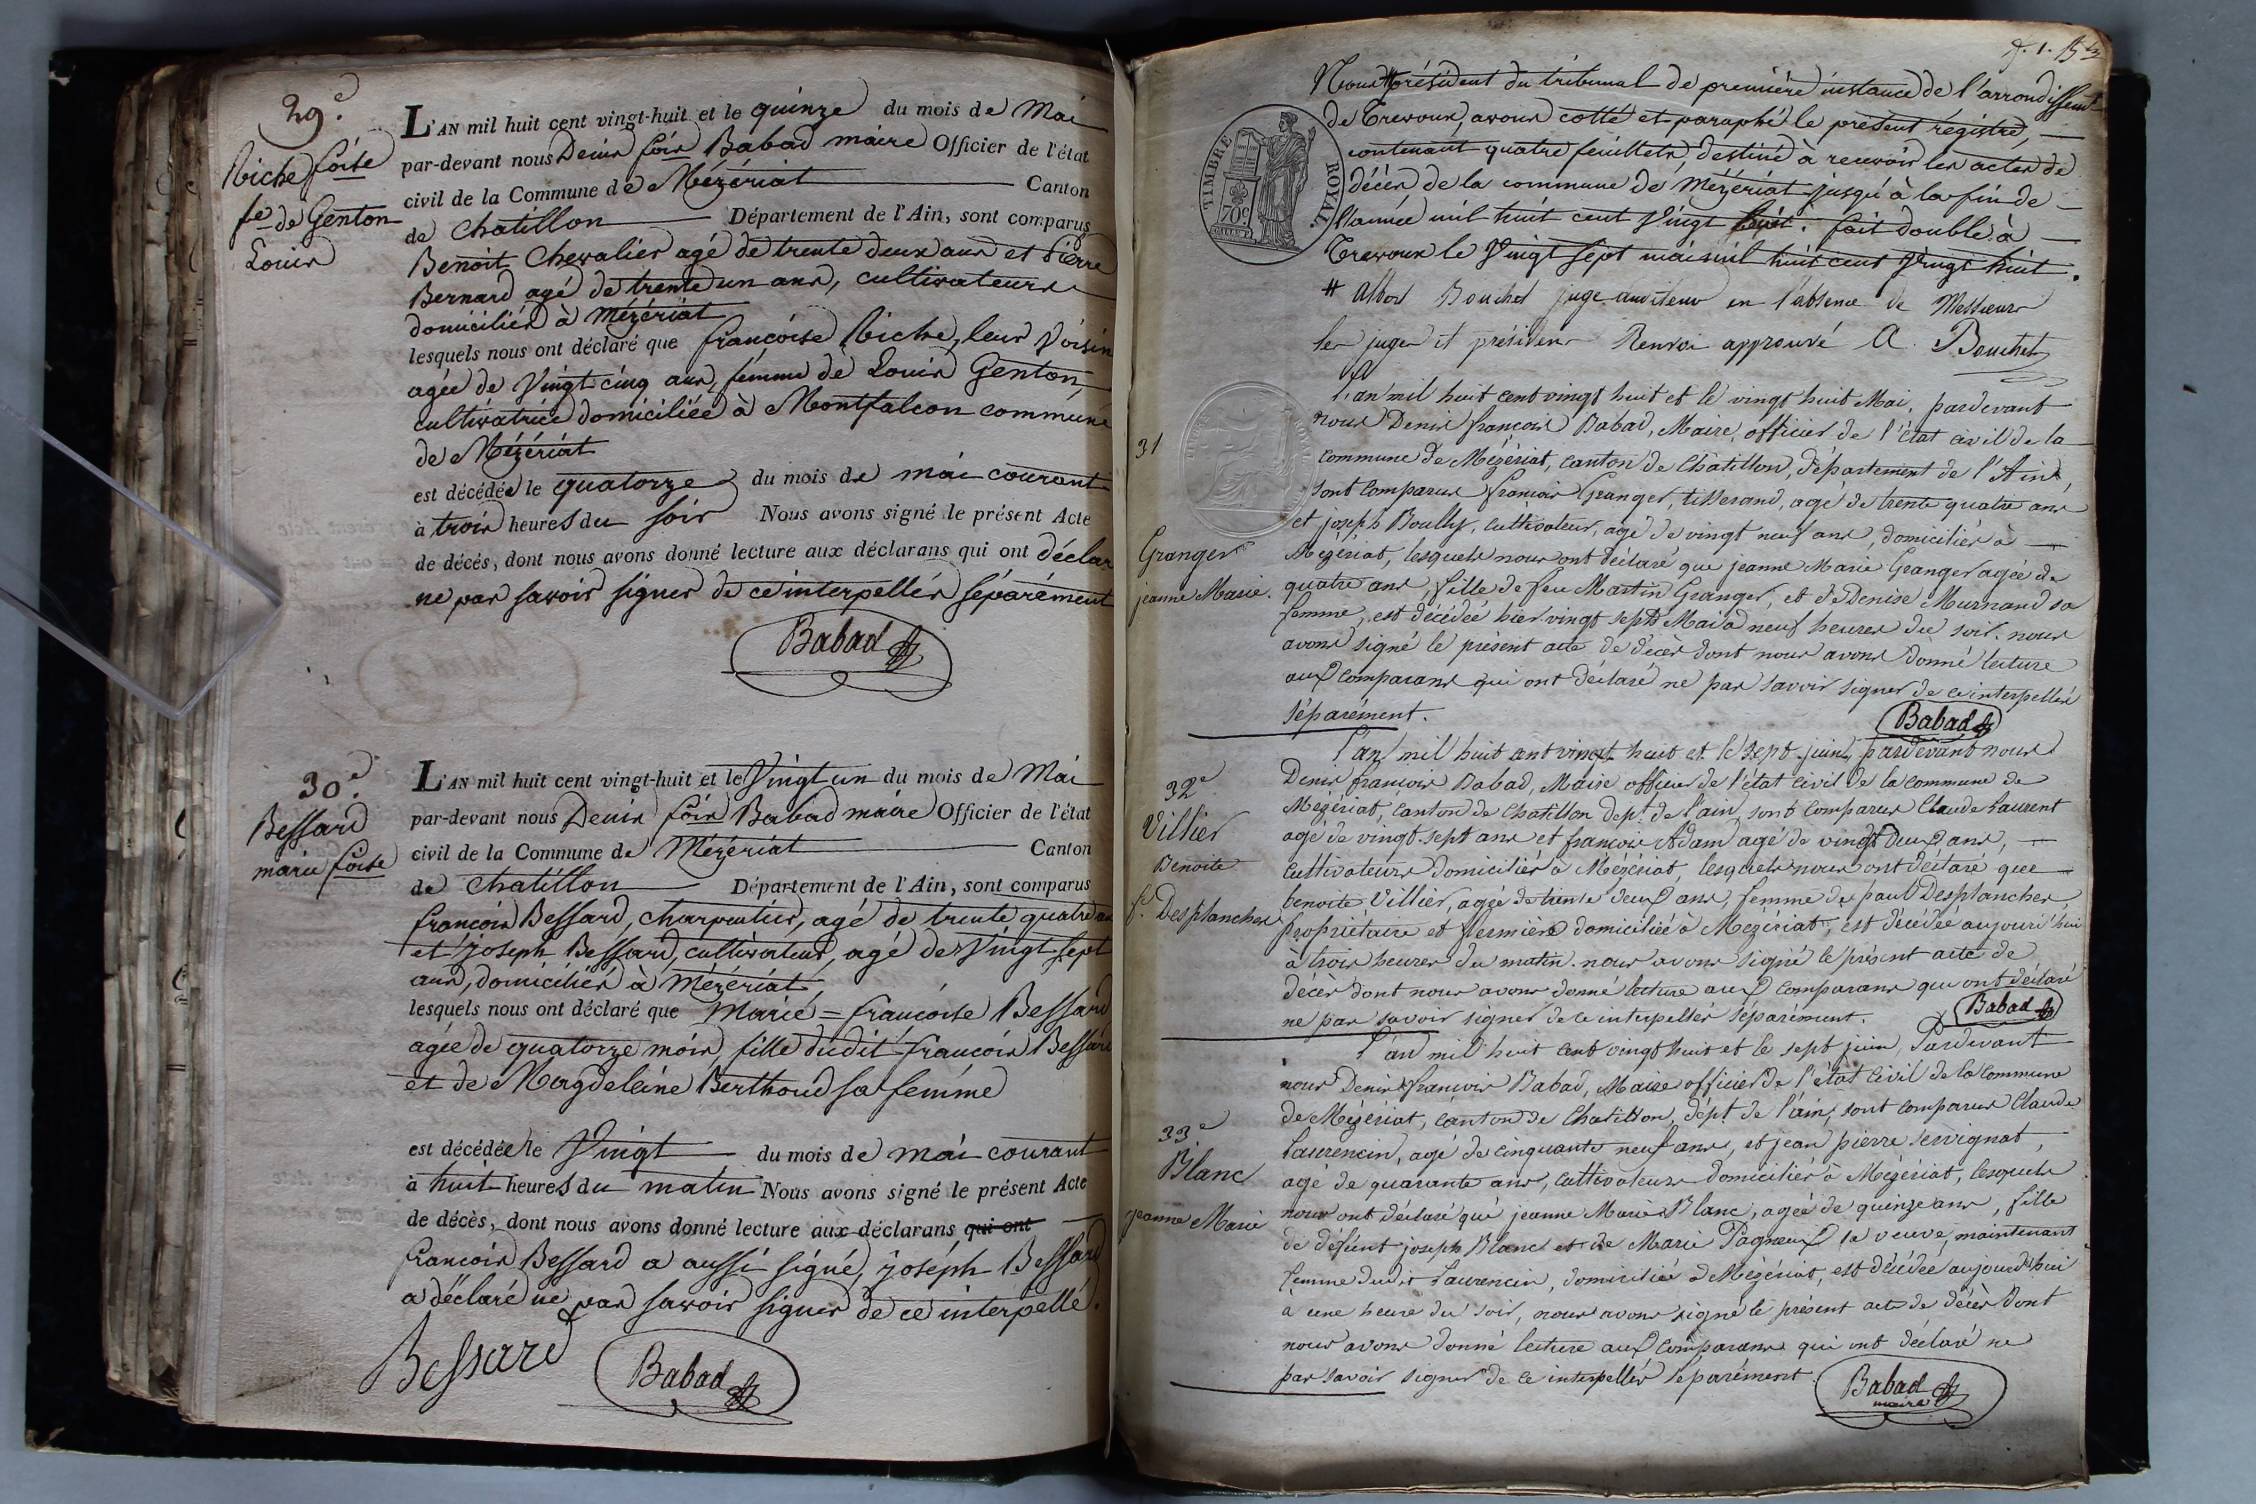 29.e
Riche foise
fe de Genton
Louis
L'AN mil huit cent vingt-huit et le quinze du mois de Mai
par-devant nous Denis fois Babad maire Officier de l'état
civil de la Commune de Mézériat Canton
de Chatillon Département de l'Ain, sont comparus
Benoit Chevalier agé de trente deux ans et Pierre
Bernard agé de trente un ans, cultivateurs
domiciliés à Mézériat
lesquels nous ont déclaré que françoise Riche, leur Voisine
agée de Vingt cinq ans, femme de Louis Genton,
cultivatrice domiciliée à Montfalcon commune
de Mézériat
est décédée le quatorze du mois de mai courant
à trois heures du soir Nous avons signé le présent Acte
de décès, dont nous avons donné lecture aux déclarans qui ont déclaré
ne pas savoir signer de ce interpellés séparément
Babad
30.e
Bessard
marie foise
L'AN mil huit cent vingt-huit et le Vingt un du mois de Mai
par-devant nous Denis fois Babad maire Officier de l'état
civil de la Commune de Mézériat Canton
de Chatillon Département de l'Ain, sont comparus
françois Bessard, charpentier, agé de trente quatre ans
et joseph Bessard, cultivateur, agé de Vingt sept
ans, domiciliés à Mézériat
lesquels nous ont déclaré que Marie=françoise Bessard
agée de quatorze mois, fille dudit françois Bessard
et de Magdeleine Berthoud sa femme
est décédée le Vingt du mois de mai courant
à huit heures du matin Nous avons signé le présent Acte
de décès, dont nous avons donné lecture aux déclarans qui ont
françois Bessard a aussi signé, joseph Bessard
a déclaré ne pas savoir signer de ce interpellé.
Bessard Babad
Nous # président du tribunal de première instance de l'arrondissemt
de Trevoux, avons cotté et paraphé le présent régistre,
contenant quatre feuillets, destiné à recevoir les actes de
décès de la commune de Mézériat jusqu'à la fin de
l'année mil huit cent Vingt huit. fait double à
Trevoux le Vingt sept mai mil huit cent Vingt huit.
TIMBRE ROYAL
70c
# Bouchet juge auditeur en l'absence de Messieurs
les juges et président Renvoi approuvé A. Bouchet
31
Granger
jeanne Marie.
l'an mil huit cent vingt huit et le vingt huit Mai, pardevant
nous Denis françois Babad, Maire, officier de l'état civil de la
commune de Mézériat, canton de Châtillon, département de l'Ain,
sont comparus françois Granger, tisserand, agé de trente quatre ans
et joseph Boully, cultivateur, agé de vingt neuf ans, domiciliés à
Mézériat, lesquels nous ont déclaré que jeanne Marie Granger agée de
quatre ans, fille de feu Martin Granger, et de Denise Murnand sa
femme, est décédée hier vingt sept Mai à neuf heures du soir. nous
avons signé le présent acte de décès dont nous avons donné lecture
aux comparans qui ont déclaré ne pas savoir signer de ce interpellés
séparément.
Babad
32e
Villier
Benoite
fe Desplanches
l'an mil huit cent vingt huit et le sept juin, pardevant nous
Denis françois Babad, Maire officier de l'état civil de la commune de
Mézériat, canton de Chatillon dept. de l'ain, sont comparus Claude Laurent
agé de vingt sept ans et françois Adam agé de vingt deux ans,
cultivateurs domiciliés à Mézériat, lesquels nous ont déclaré que
benoite Villier, agée de trente deux ans, femme de paul Desplanches
propriétaire et fermière domiciliée à Mézériat, est décédée aujourd'hui
à trois heures du matin. nous avons signé le présent acte de
décès dont nous avons donné lecture aux comparans qui ont déclaré
ne pas savoir signer de ce interpellés séparément.
Babad
33e
Blanc
jeanne Marie
l'an mil huit cent vingt huit et le sept juin, Pardevant
nous Denis françois Babad, Maire officier de l'état civil de la commune
de Mézériat, canton de Chatillon, dépt. de l'ain, sont comparus Claude
Laurencin, agé de cinquante neuf ans, et jean pierre servignat,
agé de quarante ans, cultivateurs domiciliés à Mézériat, lesquels
nous ont déclaré que jeanne Marie Blanc, agée de quinze ans, fille
de défunt joseph Blanc et de Marie Pagneux sa veuve, maintenant
femme dudit Laurencin, domiciliée à Mézériat, est décédée aujourd'hui
à une heure du soir, nous avons signé le présent acte de décès dont
nous avons donné lecture aux comparans qui ont déclaré ne
pas savoir signer de ce interpellés séparément
Babad
maire